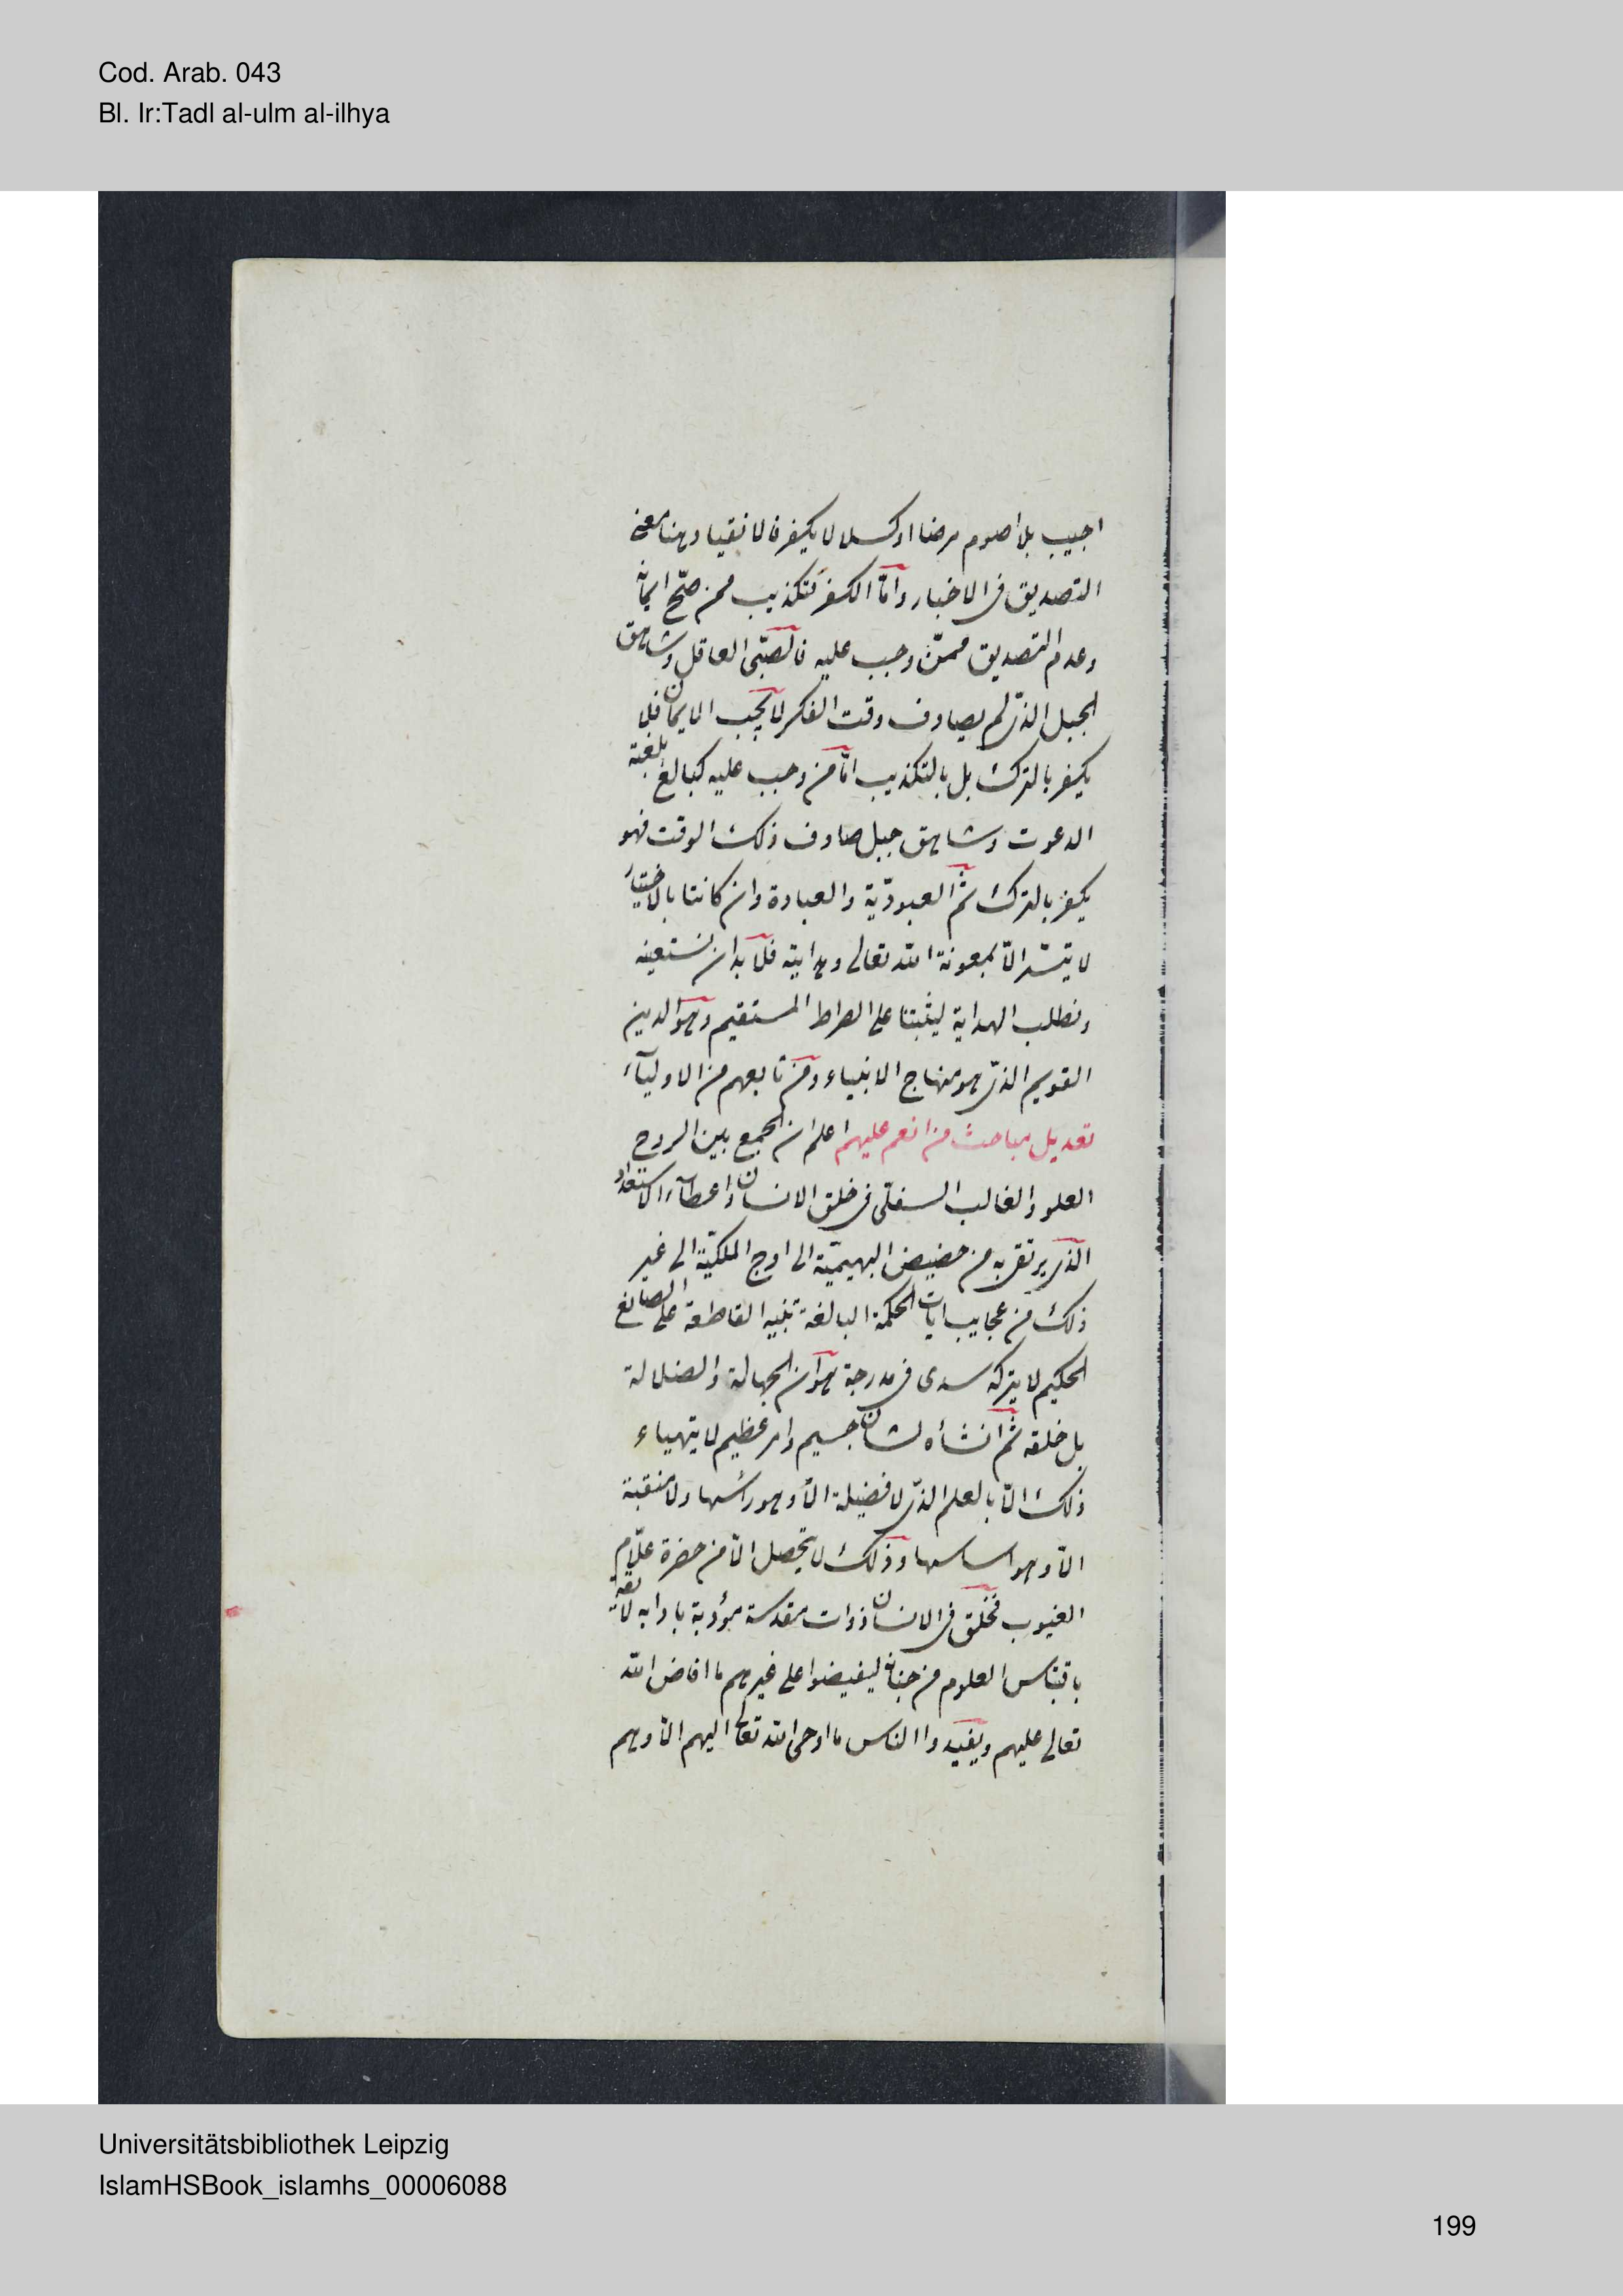 Cod. Arab. 043
Bl. Ir:Tadl al-ulm al-ilhya
اجيب بل اصوم مرضا او كسلا لا يكفر فالانقياد هنا معنى
التصديق فى الاخبار وامّا الكفر فتكذيب ممن صحّ ايمانه
وعدم التصديق ممّن وجب عليه فالصّبىّ العاقل وشاهق
الجبل الذى لم يصادف وقت الفكر لا يجب الايمان فلا
يكفر بالترك بل بالتكذيب امّا من وجب عليه كبالغ بلغته
الدعوت وشاهق جبل صادف ذلك الوقت فهو
يكفر بالترك ثمّ العبوديّة والعبادة وان كانتا بالاختيار
لا يتيسّر الّا بمعونة الله تعالى وهدايته فلا بد ان نستعينه
ونطلب الهداية ليثبتنا على الصراط المستقيم وهو الدين
القويم الذى هو منهاج الانبياء ومن تابعهم من الاوليآء
تعديل مباحث من انعم عليهم اعلم ان الجمع بين الروح
العلو والقالب السفلى فى خلق الانسان واعطآء الاستعداد
الذى يرتقى به من حضيض البهيميّة الى اوج الملكيّة الى غير
ذلك من عجايب ايات الحكمة البالغة القاطعة على الصانع
الحكيم لا يتركه سدى فى مدرجة هوان الجهالة والضلالة
بل خلقه ثمّ انشأه لشان جسيم وامر عظيم لا يتهياء
ذلك الّا بالعلم الذى لا فضيلة الّا وهو رأسها ولا منقبة
الّا وهو اساسها وذلك لا يحصل الّا من حضرة علّام
الغيوب فخلق فى الانسان ذوات مقدسة مؤدبة بادابه
باقتباس العلوم من جنابه ليفيضوا على غيرهم ما افاض الله
تعالى عليهم ويفيدوا الناس ما اوحى الله تعالى اليهم الّا وهم
Universitätsbibliothek Leipzig
IslamHSBook_islamhs_00006088
199